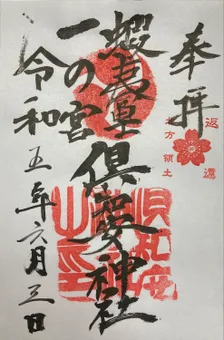 奉拝
返還
北方領土
蝦夷富士
倶知安神社
一の宮
令和五年六月三日